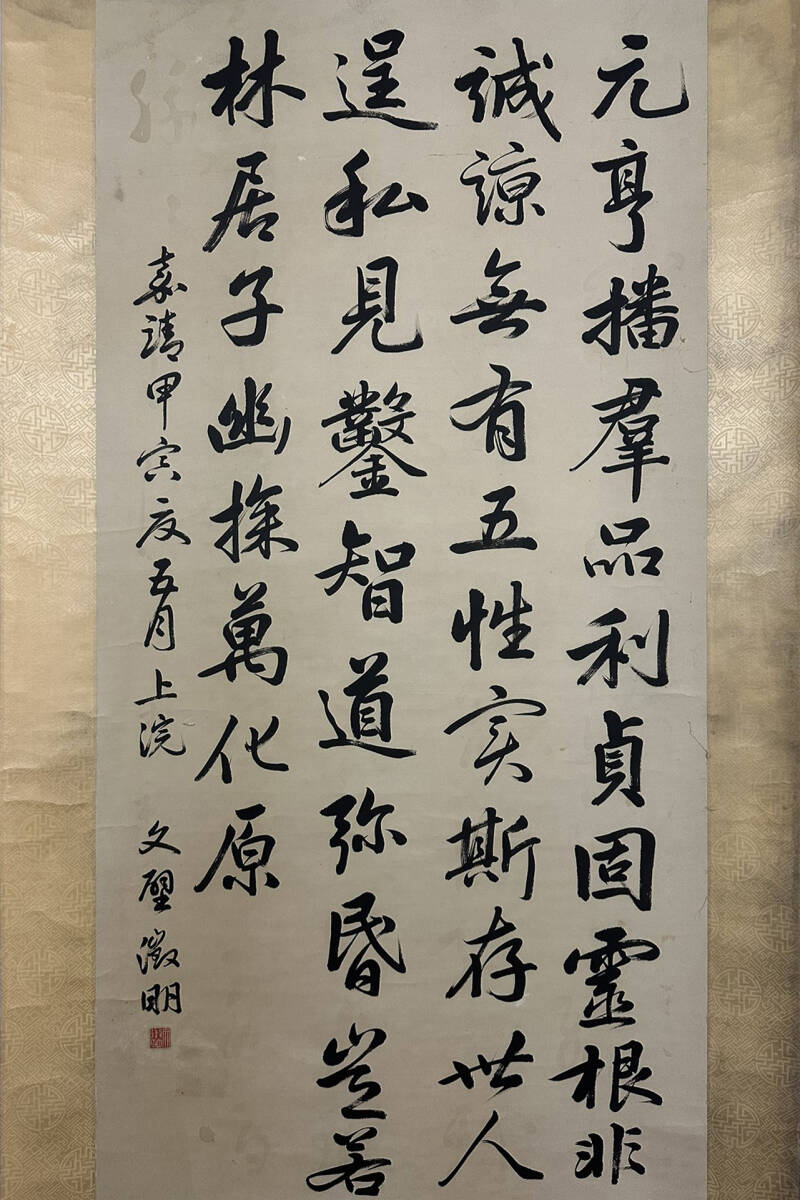 元亨播羣品利貞固靈根非
誠諒無有五性实斯存世人
逞私見鑿智道弥昏岂若
林居子幽探萬化原
嘉靖甲寅夜五月上浣 文壁徵明